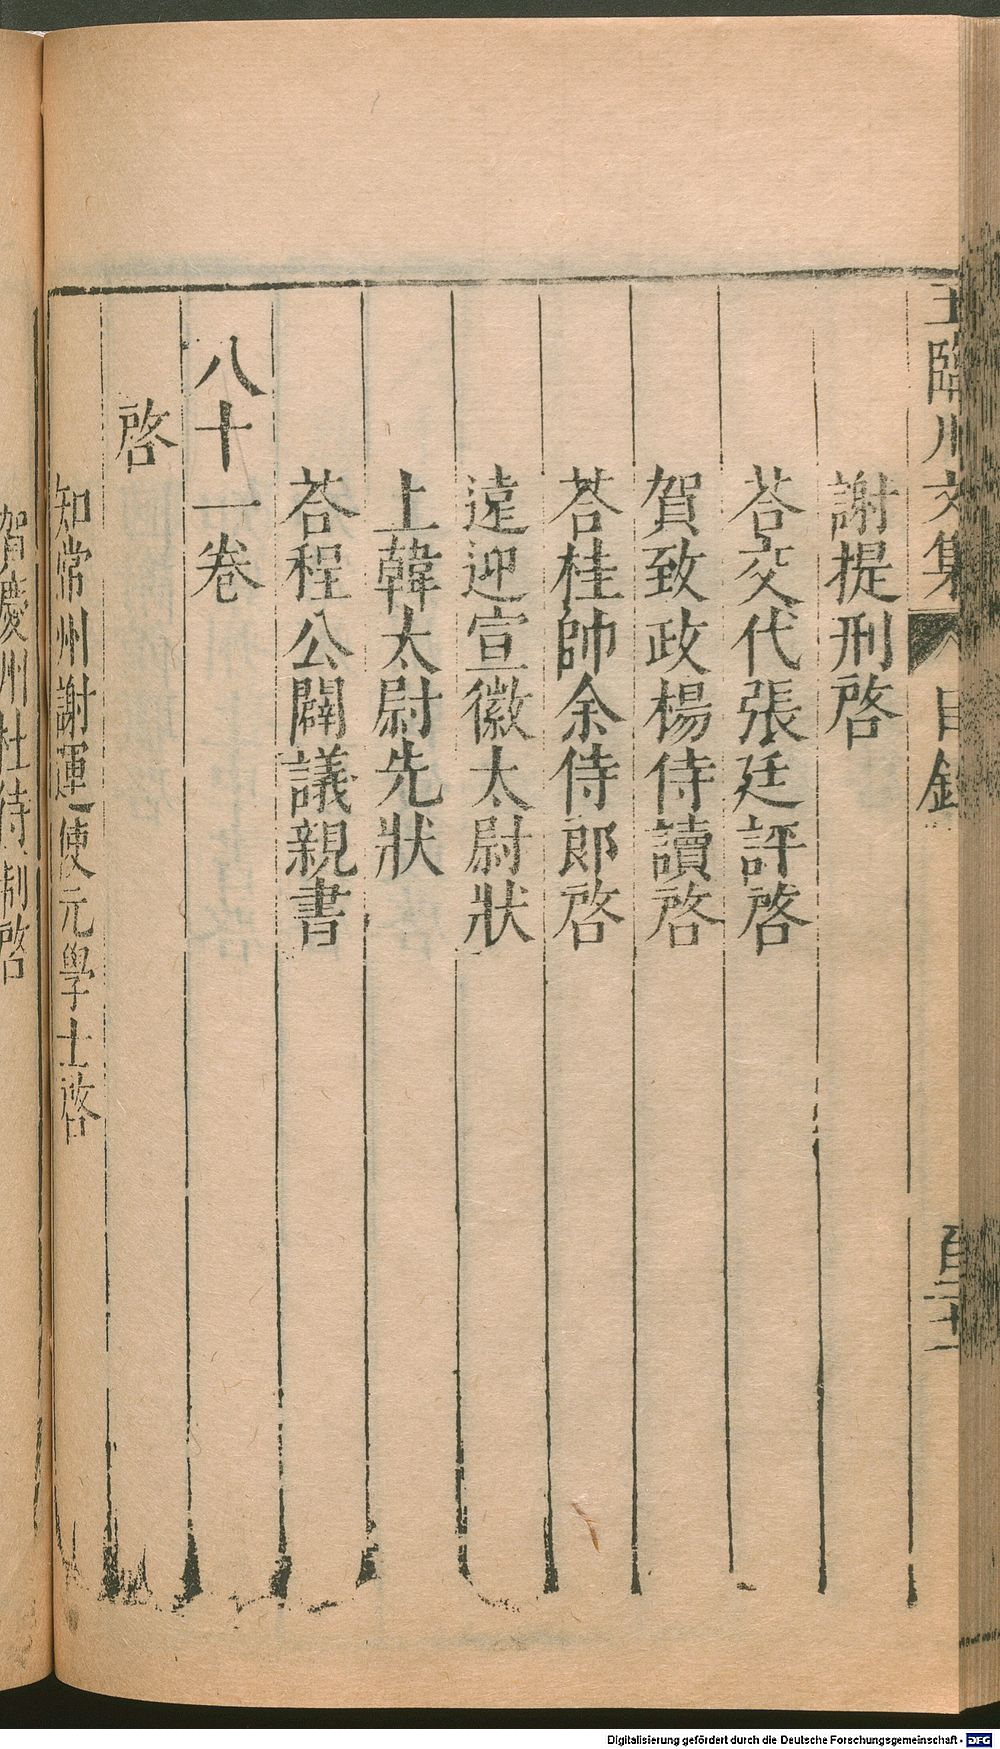 王臨川文集 目錄 百二十一
謝提刑啓
荅交代張廷評啓
賀致政楊侍讀啓
荅桂帥余侍郎啓
遠迎宣徽太尉狀
上韓太尉先狀
荅程公闢議親書
八十一卷
啓
知常州謝運使元學士啓
賀慶州杜待制啓
Digitalisierung gefördert durch die Deutsche Forschungsgemeinschaft - DFG